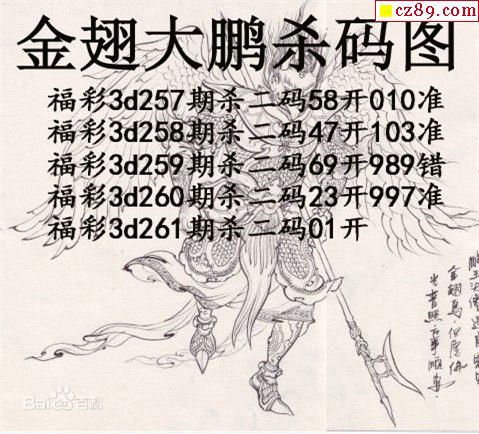 cz89.com
金翅大鹏杀码图
福彩3d257期杀二码58开010准
福彩3d258期杀二码47开103准
福彩3d259期杀二码69开989错
福彩3d260期杀二码23开997准
福彩3d261期杀二码01开
Baidu百科